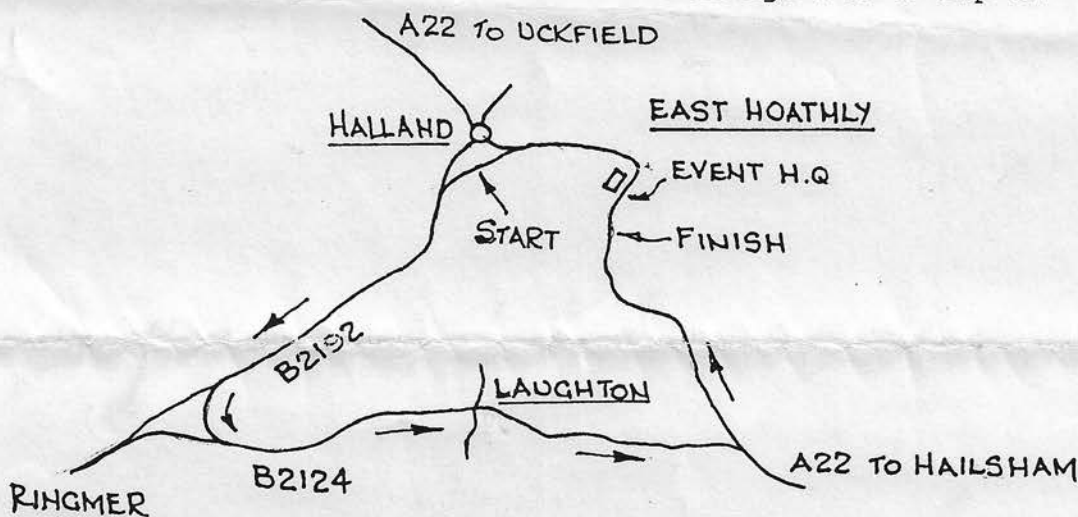 A22 TO UCKFIELD
HALLAND
EAST HOATHLY
EVENT H.Q
START
FINISH
B2192
LAUGHTON
B2124
A22 TO HAILSHAM
RINGMER